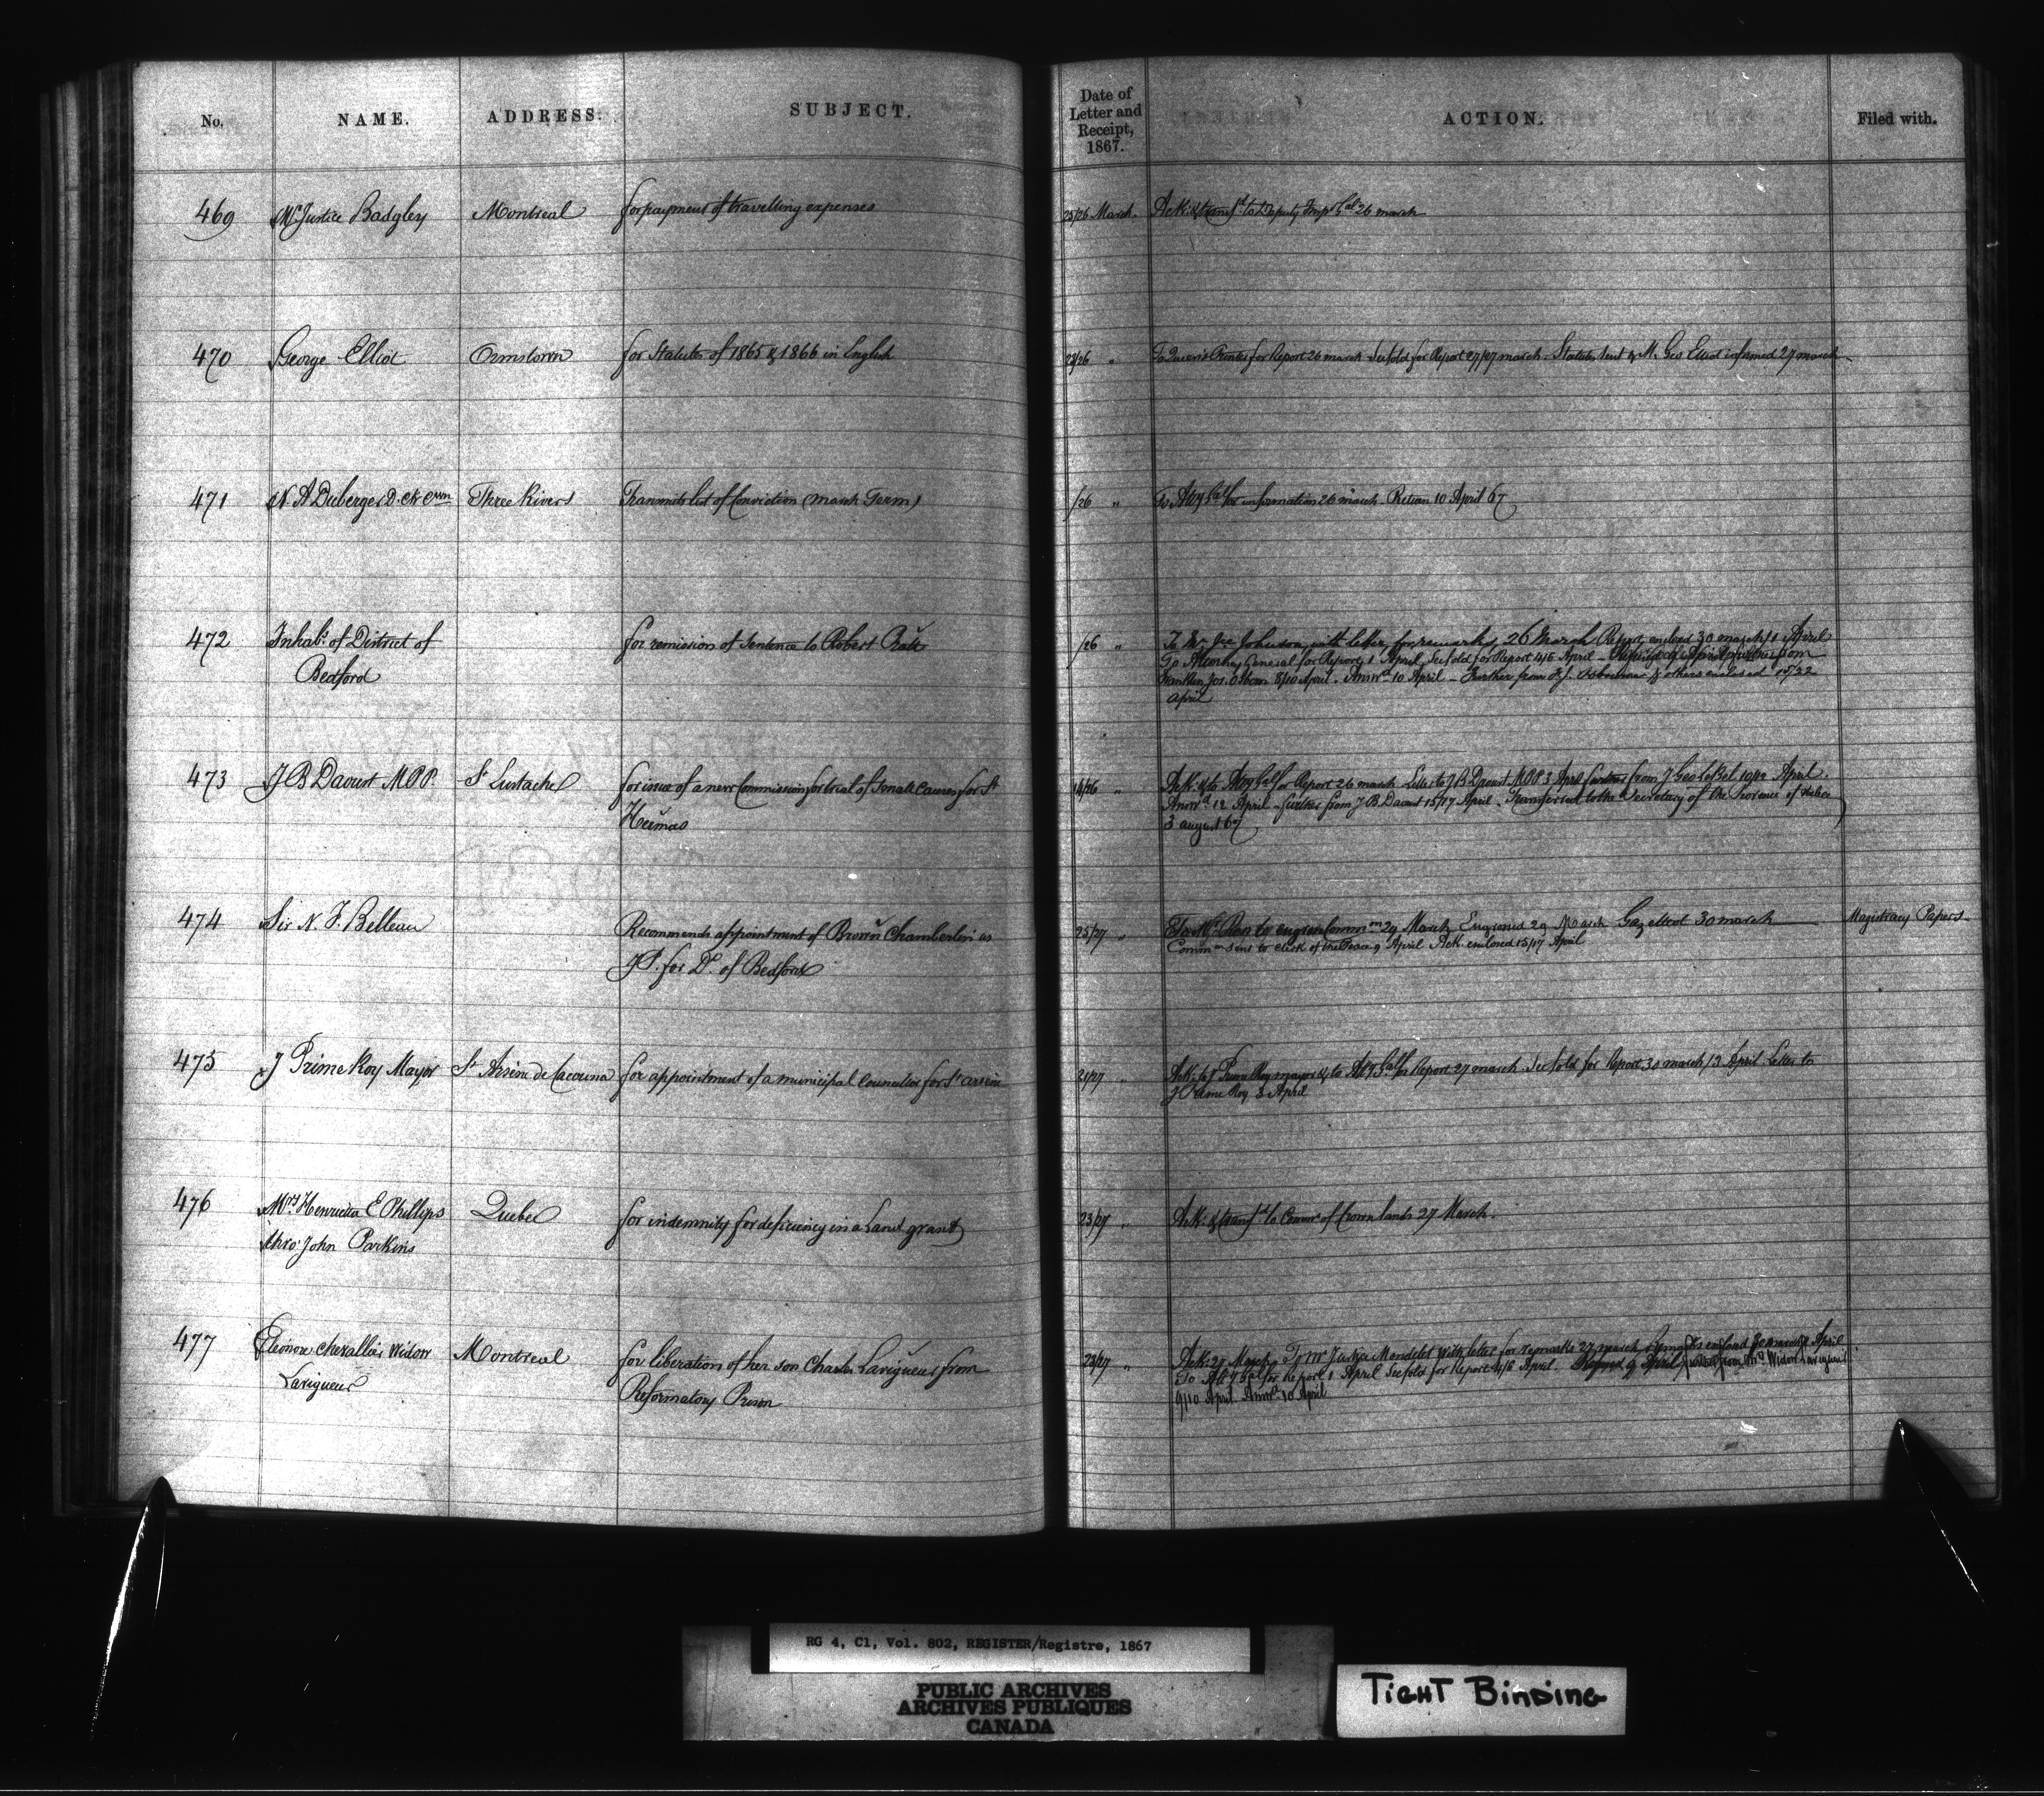 No. NAME. ADDRESS. SUBJECT. Date of Letter and Receipt, 1867. ACTION. Filed with.
469 Mr Justice Badgley Montreal for payment of travelling expenses 25/26 March. Ack. & transfd to Deputy Insp. Gal 26 march
470 George Elliot Ormstown for Statutes of 1865 & 1866 in English 23/26 " To Queen's Printer for Report 26 march See fold for Report 27/27 march. Statutes sent & M. Geo Elliot informed 27 march
471 N. A Duberger D. Ck Crwn Three Rivers Transmits list of Conviction (March Term) /26 " To Atty Gal for information 26 march. Return 10 April 67
472 Inhabs of District of for remission of Sentence to Robert Pratt /26 " To Mr Jce Johnson with letter for remarks 26 March Report enclosed 30 march/1 April
Bedford To Attorney General for Report, 1 April, See fold for Report 4/5 April - April further from
Franklin Jos. Osborn 8/10 April. Answd 10 April - Further from F.J. Osborne & others enclosed 15/22
April
473 J B Daoust M.P.P. St Eustache for issue of a new Commission for trial of Small Causes for St 14/26 " Ack. & to Atty Gal for Report 26 march Letter to J B Daoust M.P.P 3 April further from J Geo LeBel 10/12 April.
Hermas Answd 12 April - further from J. B. Daoust 15/17 April - Transferred to the Secretary of the Province of Quebec
3 august 67
474 Sir N. F. Belleau Recommends appointment of Brown Chamberlin as 25/27 " To Mr Ross to engross Common 29 March Engrossed 29 March Gazetted 30 march Magistracy Papers
J.P. for Dt. of Bedford Common sent to Clerk of the Peace 9 April Ack. enclosed 15/17 April
475 J Prime Roy Mayor St Arsène de Cacouna for appointment of a municipal Councillor for St arsène 21/27 " Ack. to J Prime Roy mayor & to Atty Gal for Report 27 march. See fold for Report 30 march/3 April Letter to
J Prime Roy 3 April
476 Mrs Henrietta E Phillips Quebec for indemnity for deficiency in a Land grant 23/27 " Ack. & transfd to Commr of Crown lands 27 March.
thro' John Parkins
477 Eleonore Chevallier Widow Montreal for liberation of her son Charles Lavigueur from 23/27 " Ack. 27 March To Mr Justice Mondelet with letter for remarks 27 march Remarks enclosed 30 march/1 April
Lavigueur Reformatory Prison To Atty Gal for Report 1 April See fold for Report 4/6 April. 9 April further from Mrs Widow Lavigueur
9/10 April. Answd 10 April
RG 4, C1, Vol. 802, REGISTER/Registre, 1867
PUBLIC ARCHIVES
ARCHIVES PUBLIQUES
CANADA
TIGHT BINDING